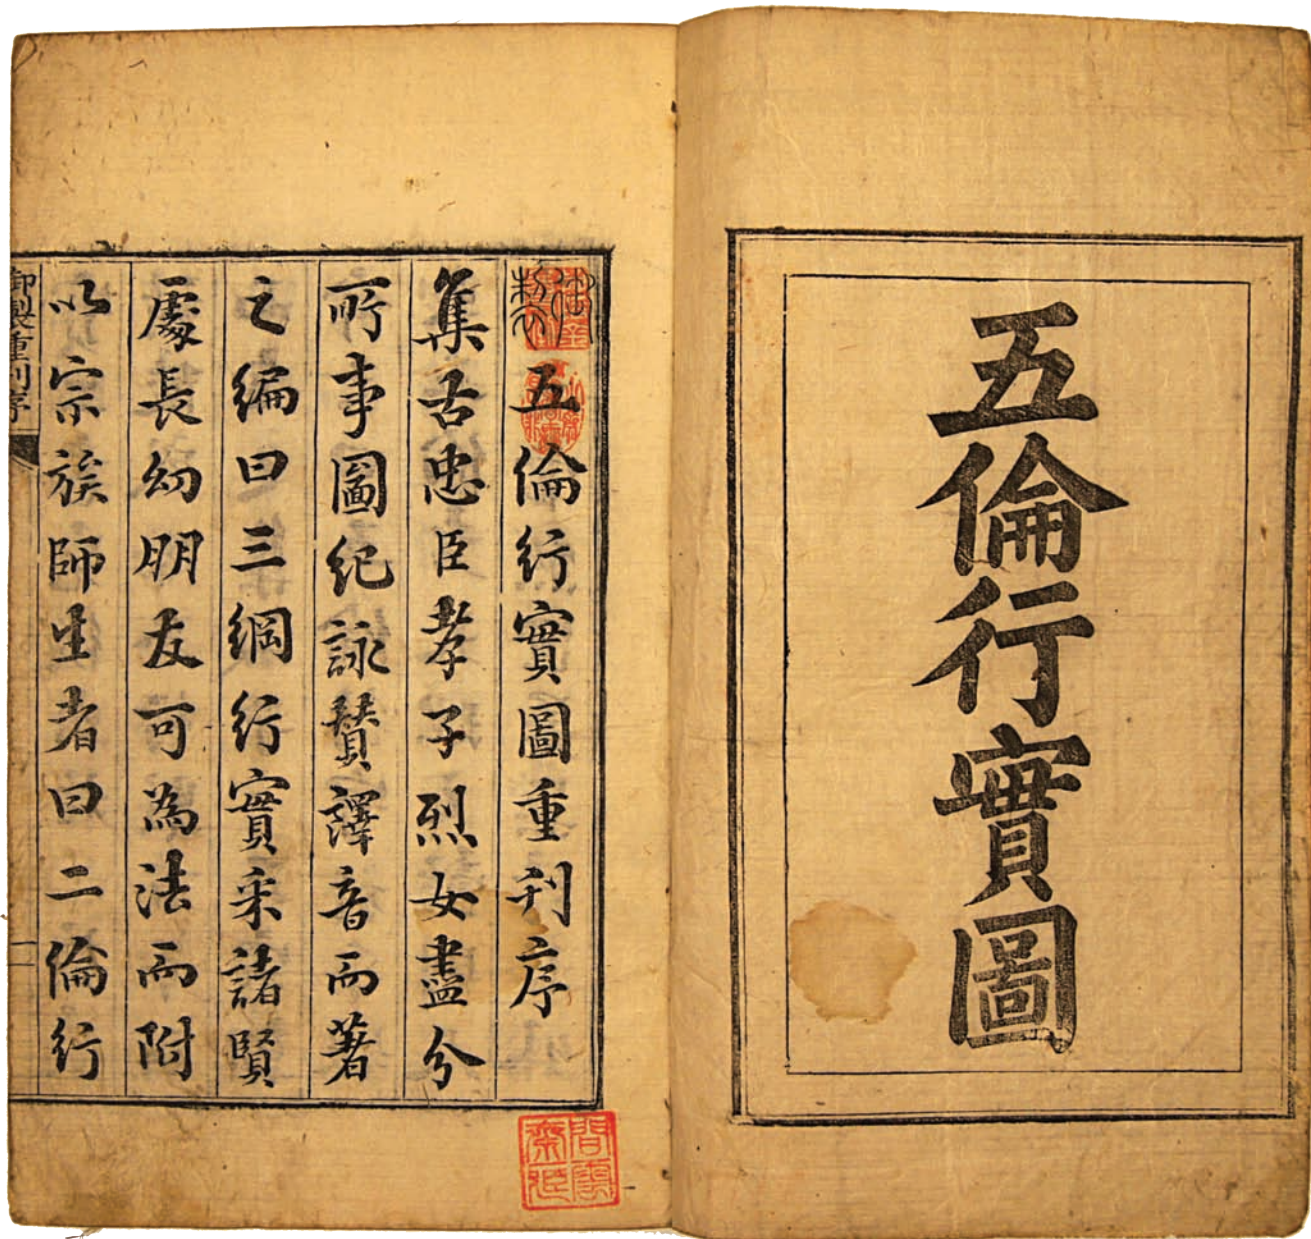 五倫行實圖
御製五倫行實圖重刋序
集古忠臣孝子烈女盡分
所事圖紀詠贊譯音而著
之編曰三綱行實采諸賢
處長幼朋友可為法而附
以宗族師生者曰二倫行
御製重刊序
一